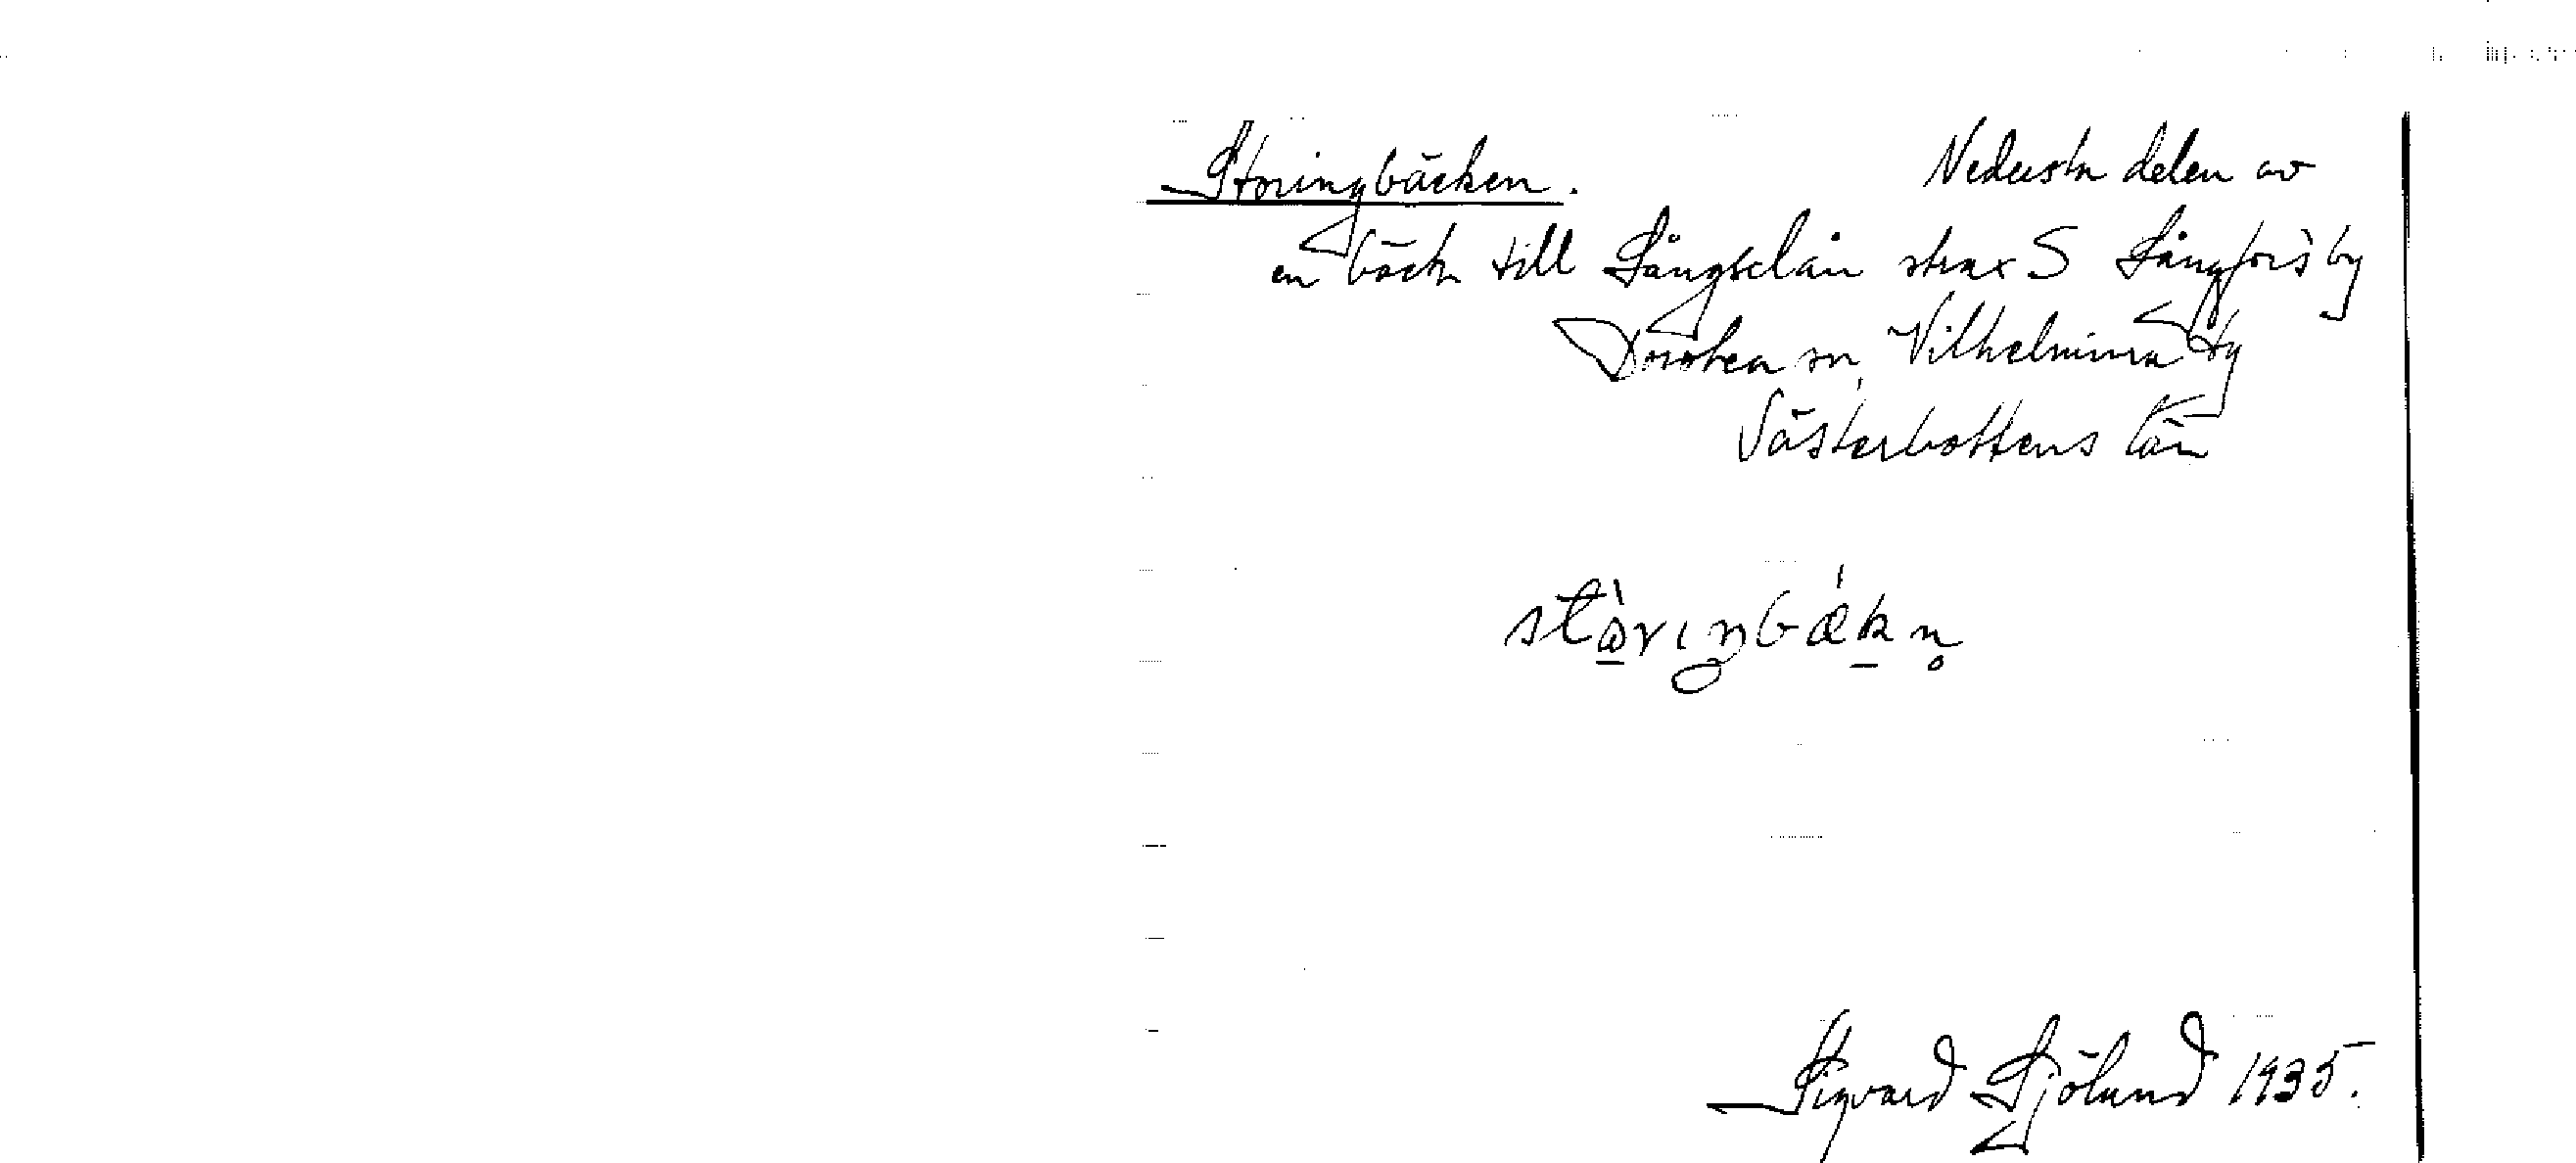 Storingbäcken. Nedersta delen av
en bäck till Långselån strax S Långfors by
Dorotea sn, Vilhelmina tg
Västerbottens län
stò̱rıŋbǽḵn̥
Sigvard Sjölund 1935.